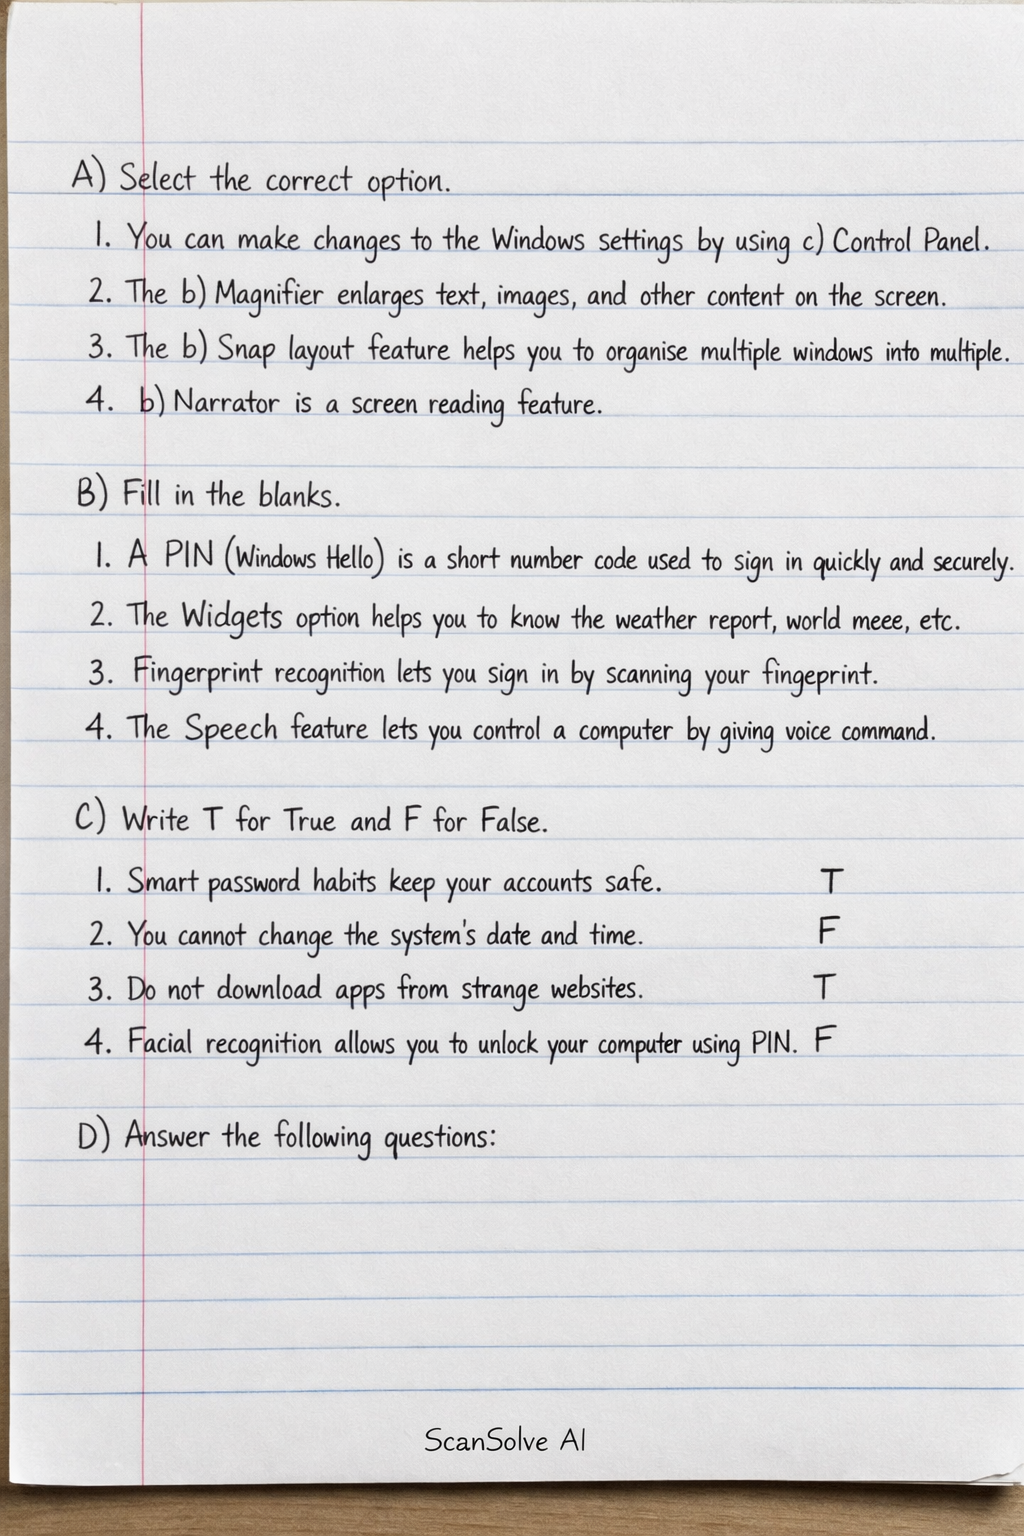 A) Select the correct option.
1. You can make changes to the Windows settings by using c) Control Panel.
2. The b) Magnifier enlarges text, images, and other content on the screen.
3. The b) Snap layout feature helps you to organise multiple windows into multiple.
4. b) Narrator is a screen reading feature.
B) Fill in the blanks.
1. A PIN (Windows Hello) is a short number code used to sign in quickly and securely.
2. The Widgets option helps you to know the weather report, world meee, etc.
3. Fingerprint recognition lets you sign in by scanning your fingeprint.
4. The Speech feature lets you control a computer by giving voice command.
C) Write T for True and F for False.
1. Smart password habits keep your accounts safe. T
2. You cannot change the system's date and time. F
3. Do not download apps from strange websites. T
4. Facial recognition allows you to unlock your computer using PIN. F
D) Answer the following questions:
ScanSolve AI